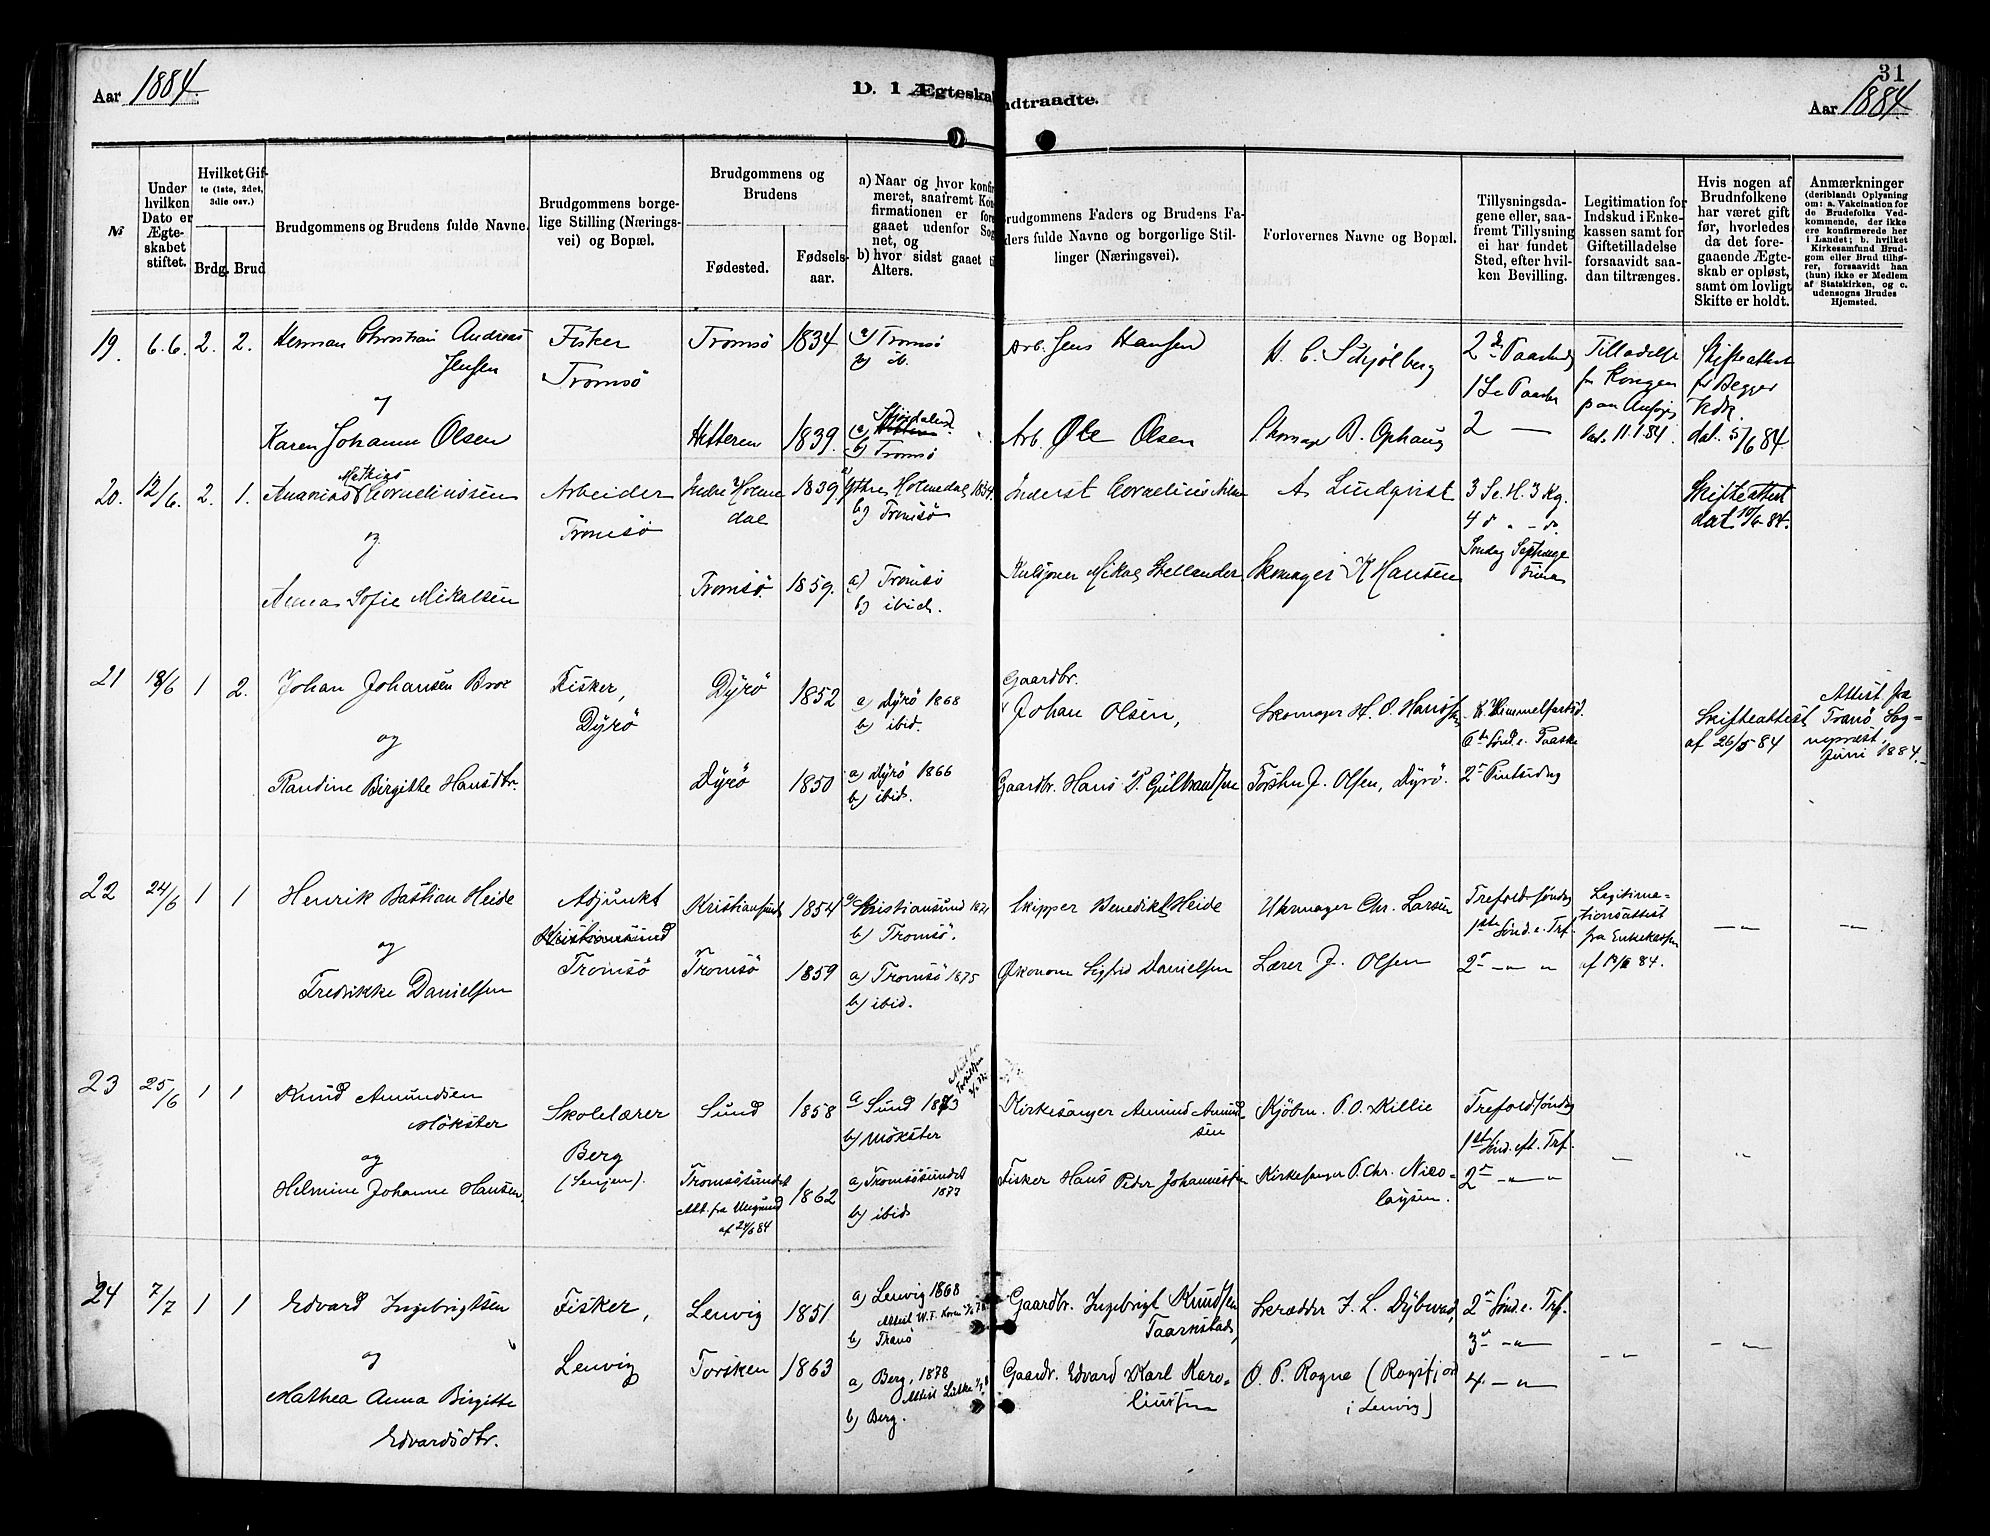 Aar 1884.
D. 1 Ægteskab
Indtraadte.
31
Aar 1884.
№
Under hvilken Dato er Ægteskabet stiftet.
Hvilket Gifte (1ste, 2det, 3die osv.)
Brdg. Brud
Brudgommens og Brudens fulde Navne.
Brudgommens borgelige Stilling (Næringsvei) og Bopæl.
Brudgommens og Brudens
Fødested.
Fødselsaar.
a) Naar og hvor konfirmeret, saafremt Konfirmationen er foregaaet udenfor Sognet, og
b) hvor sidst gaaet til Alters.
Brudgommens Faders og Brudens Faders fulde Navne og borgorlige Stillinger (Næringsvei).
Forlovernes Navne og Bopæl.
Tillysningsdagene eller, saafremt Tillysning ei har fundet Sted, efter hvilken Bevilling.
Legitimation for Indskud i Enkekassen samt for Giftetilladelse forsaavidt saadan tiltrænges.
Hvis nogen af Brudnfolkene har været gift før, hvorledes da det foregaaende Ægteskab er opløst, samt om lovligt Skifte er holdt.
Anmærkninger (deriblandt Oplysning om: a. Vakcination for de Brudefolks Vedkommende, der ikke ere konfirmerede her i Landet; b. hvilket Kirkesamfund Brudgom eller Brud tilhører, forsaavidt han (hun) ikke er Medlem af Statskirken, og c. udensogns Brudes Hjemsted.
19. 6.6. 2. 2. Herman Christian Andreas Fisker Tromsö 1834 a) Tromsö Arb. Jens Hansen H. C. Schjølberg 2den Paaskedag Tilladelse Skifteattest
Jensen Tromsö b) ib. fr Kongen fr Begger
Karen Johanne Olsen Hitteren 1839. b) Tromsö Arb. Ole Olsen Skomager B. Ophaug 2 — dat. 11.1.84. dat. 5/6 84
20. 12/6. 2. 1. Ananias Mathias Cornelinssen Arbeider Indre Holmedal 1839 Holmedal 1854. Cornelius A. Lindqvist 3 S. e. H. 3 Kg. Skifteattest
og Tromsö b) Tromsö dat. 10/6 84.
Anna Sofie Mikalsen Tromsö. 1859. a) Tromsö Mikal Skomager K Hansen Søndag Septuagesima
b) ibid.
21 18/6 1 2. Johan Johansen Brox Fisker, Dyrö 1852 a) Dyrö 1868 Gaardbr. Johan Olsen, Skomager H. O. Hansen K. Himmelfartsd. Skifteattest Attest fra
og Dyrö b) ibid. 6te Sönd. e. Paaske af 26/5 84 Tranö Sognepræst,
Randine Birgitte Hansdtr. Dyrö 1850 a) Dyrö 1866 Gaardbr. Hans P. Gulbrandsen J. Olsen, Dyrö. 2n Pintsedag Juni 1884.
b) ibid.
22 24/6 1 1 Henrik Bastian Heide Adjunkt Kristiansund 1854 a) Kristiansund 1871 Skipper Benedikt Heide Uhrmager Chr. Larsen Trefold. söndag Legitimationsattest —„— —„—
og Kristiansund b) Tromsö. 1ste Sönd. e. Trf. fra Enkekassen
Fredrikke Danielsen Tromsö Tromsö 1859 a) Tromsö 1875 Økonom Sigfrid Danielsen Lærer J. Olsen 2n —„— „
b) ibid.
23 25/6 1 1 Knud Amundsen Skolelærer Sund 1858 a Sund 1873 Kirkesanger Amund Amundsen Kjöbm. P. O. Killie Trefold söndag
Mökster Berg b) Mökster 1ste Sönd. eft. Trf. — „
og (Senjen).
Helmine Johanne Hansen, Tromsösundet 1862 a) Tromsösundet 1877 Fisker Hans Peder Johannessen Kirkesanger P. Chr. Nicolaysen. 2n —„— „
Att. fra Ungmand af 24/6 84 b) ibid
24 7/7 1 1 Edvard Ingebrigtsen Fisker, Lenvig 1851 a) Lenvig 1868 Gaardbr. Ingebrigt Knudsen Skrædder J. L. Dybwad, 2n Sönd. e. Trf.
og Lenvig b) Tranö 3n —„— —„— —„—
Mathea Anna Birgitte Torsken 1863 a) Berg, 1878 Gaardbr. Edvard Karl Karoliussen O. P. Rogne (Rogsfjord i Lenvig) 4. —„—
Edvardsdtr. b) Berg.